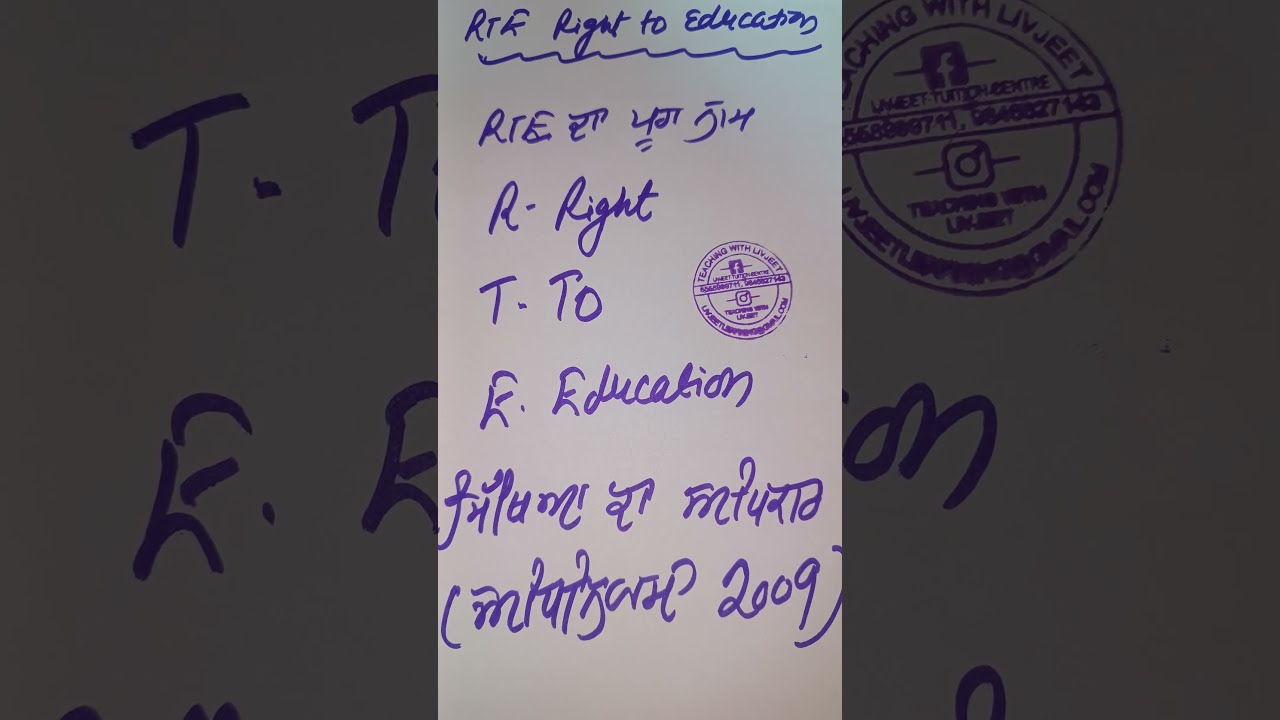 RTE Right to Education
RTE ਦਾ ਪੂਰਾ ਨਾਮ
R- Right
T. To
E. Education
ਸਿੱਖਿਆ ਦਾ ਅਧਿਕਾਰ
2009)
TEACHING WITH LIVJEET
LIVJEET TUITION CENTRE
TEACHING WITH
LIVJEET